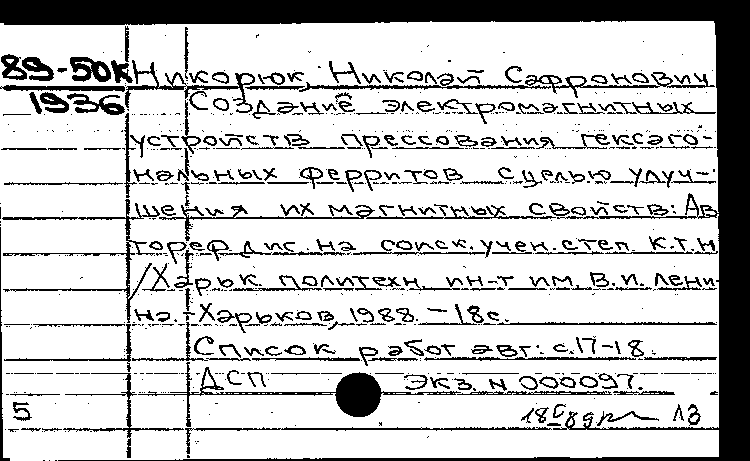 89-50К Никорюк, Николай Сафронович
1936 Создание электромагнитных
устройств прессования гексаго-
нальных ферритов с целью улуч-
шения их магнитных свойств: Ав
тореф дис. на соиск. учен. степ. к.т.н
/Харьк. политехн. ин-т им. В. И. Лени-
на. - Харьков, 1988. - 18с.
Список работ авт: с. 17-18.
ДСП Экз. N 000097.
5